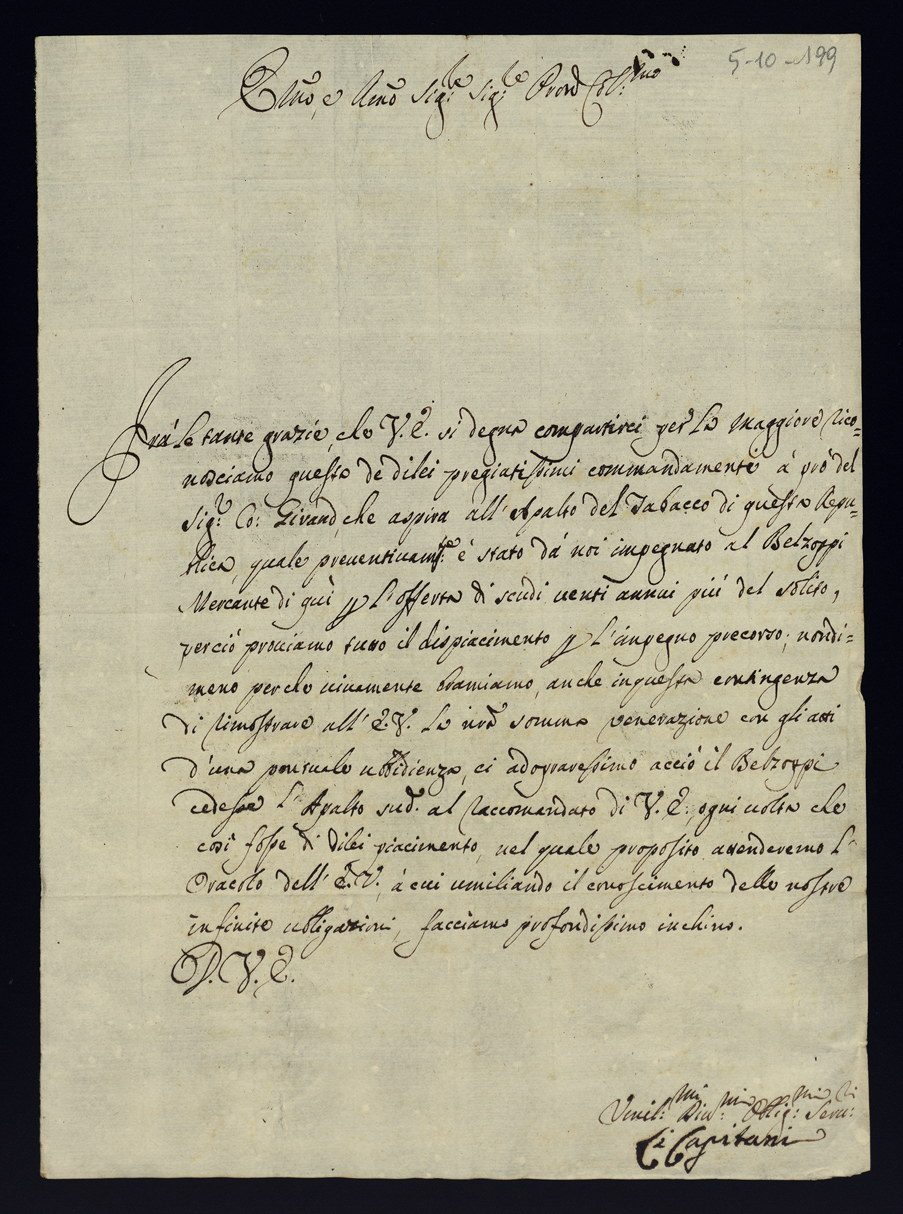 5-10-199
Emo, e Rmo Sig:re Sig:re Prone Col:mo
Frà le tante grazie, che V. E. si degna compartirci per la maggiore rico=
nosciamo questa de di lei pregiatissimi commandamenti à prò del
Sig:r Co: Giraud, che aspira all'Apalto del Tabacco di questa Repu=
blica, quale preventivamte: è stato dà noi impegnato al Belzoppi
Mercante di quì p l'offerta di scudi venti annui più del solito,
perciò proviamo tutto il dispiacimento p l'impegno precorso; nondi=
meno perche vivamente bramiamo, anche in questa contingenza
di rimostrare all'E. V. la nrã somma venerazione con gli atti
d'una pontuale ubbidienza, ci adopraressimo acciò il Belzoppi
cedesse l'Apalto sud.o al raccomandato di V. E: ogni volta che
così fosse di di lei piacimento, nel quale proposito attenderemo l'
Oracolo dell'E. V., à cui umiliando il conoscimento delle nostre
infinite obligazioni, facciamo profondissimo inchino.
D. V. E.
Umil:mi Div:mi Oblig:mi Serv:ri
Li Capitani